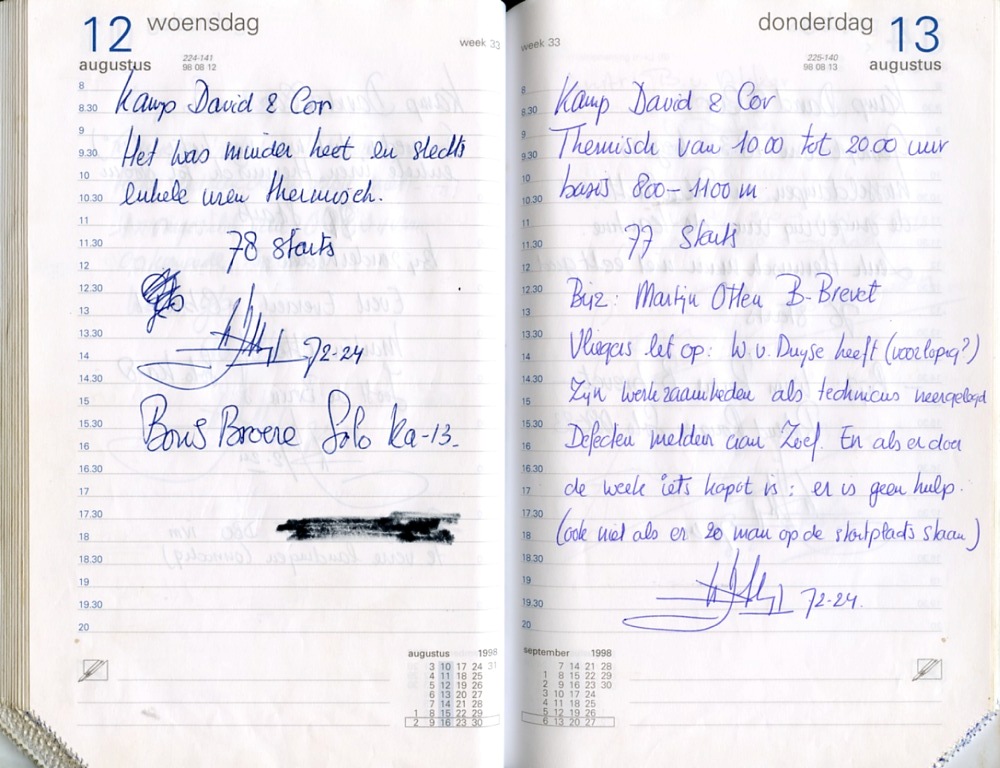 12 woensdag
augustus
224-141
98 08 12
week 33
8
8.30
9
9.30
10
10.30
11
11.30
12
12.30
13
13.30
14
14.30
15
15.30
16
16.30
17
17.30
18
18.30
19
19.30
20
Kamp David & Cor
Het was minder heet en slechts
enkele uren thermisch.
78 starts
72-24
Boris Broere Solo Ka-13.
augustus 1998
3 10 17 24 31
4 11 18 25
5 12 19 26
6 13 20 27
7 14 21 28
1 8 15 22 29
2 9 16 23 30
donderdag 13
augustus
225-140
98 08 13
week 33
8
8.30
9
9.30
10
10.30
11
11.30
12
12.30
13
13.30
14
14.30
15
15.30
16
16.30
17
17.30
18
18.30
19
19.30
20
Kamp David & Cor
Thermisch van 10.00 tot 20.00 uur
basis 800-1100 m
77 Starts
Bijz: Martijn Otten B-Brevet
Vliegers let op: W.v. Duyse heeft (voorlopig?)
Zijn werkzaamheden als technicus neergelegd
Defecten melden aan Zoef. En als er door
de week iets kapot is: er is geen hulp.
(ook niet als er 20 man op de startplaats staan)
72-24.
september 1998
7 14 21 28
1 8 15 22 29
2 9 16 23 30
3 10 17 24
4 11 18 25
5 12 19 26
6 13 20 27